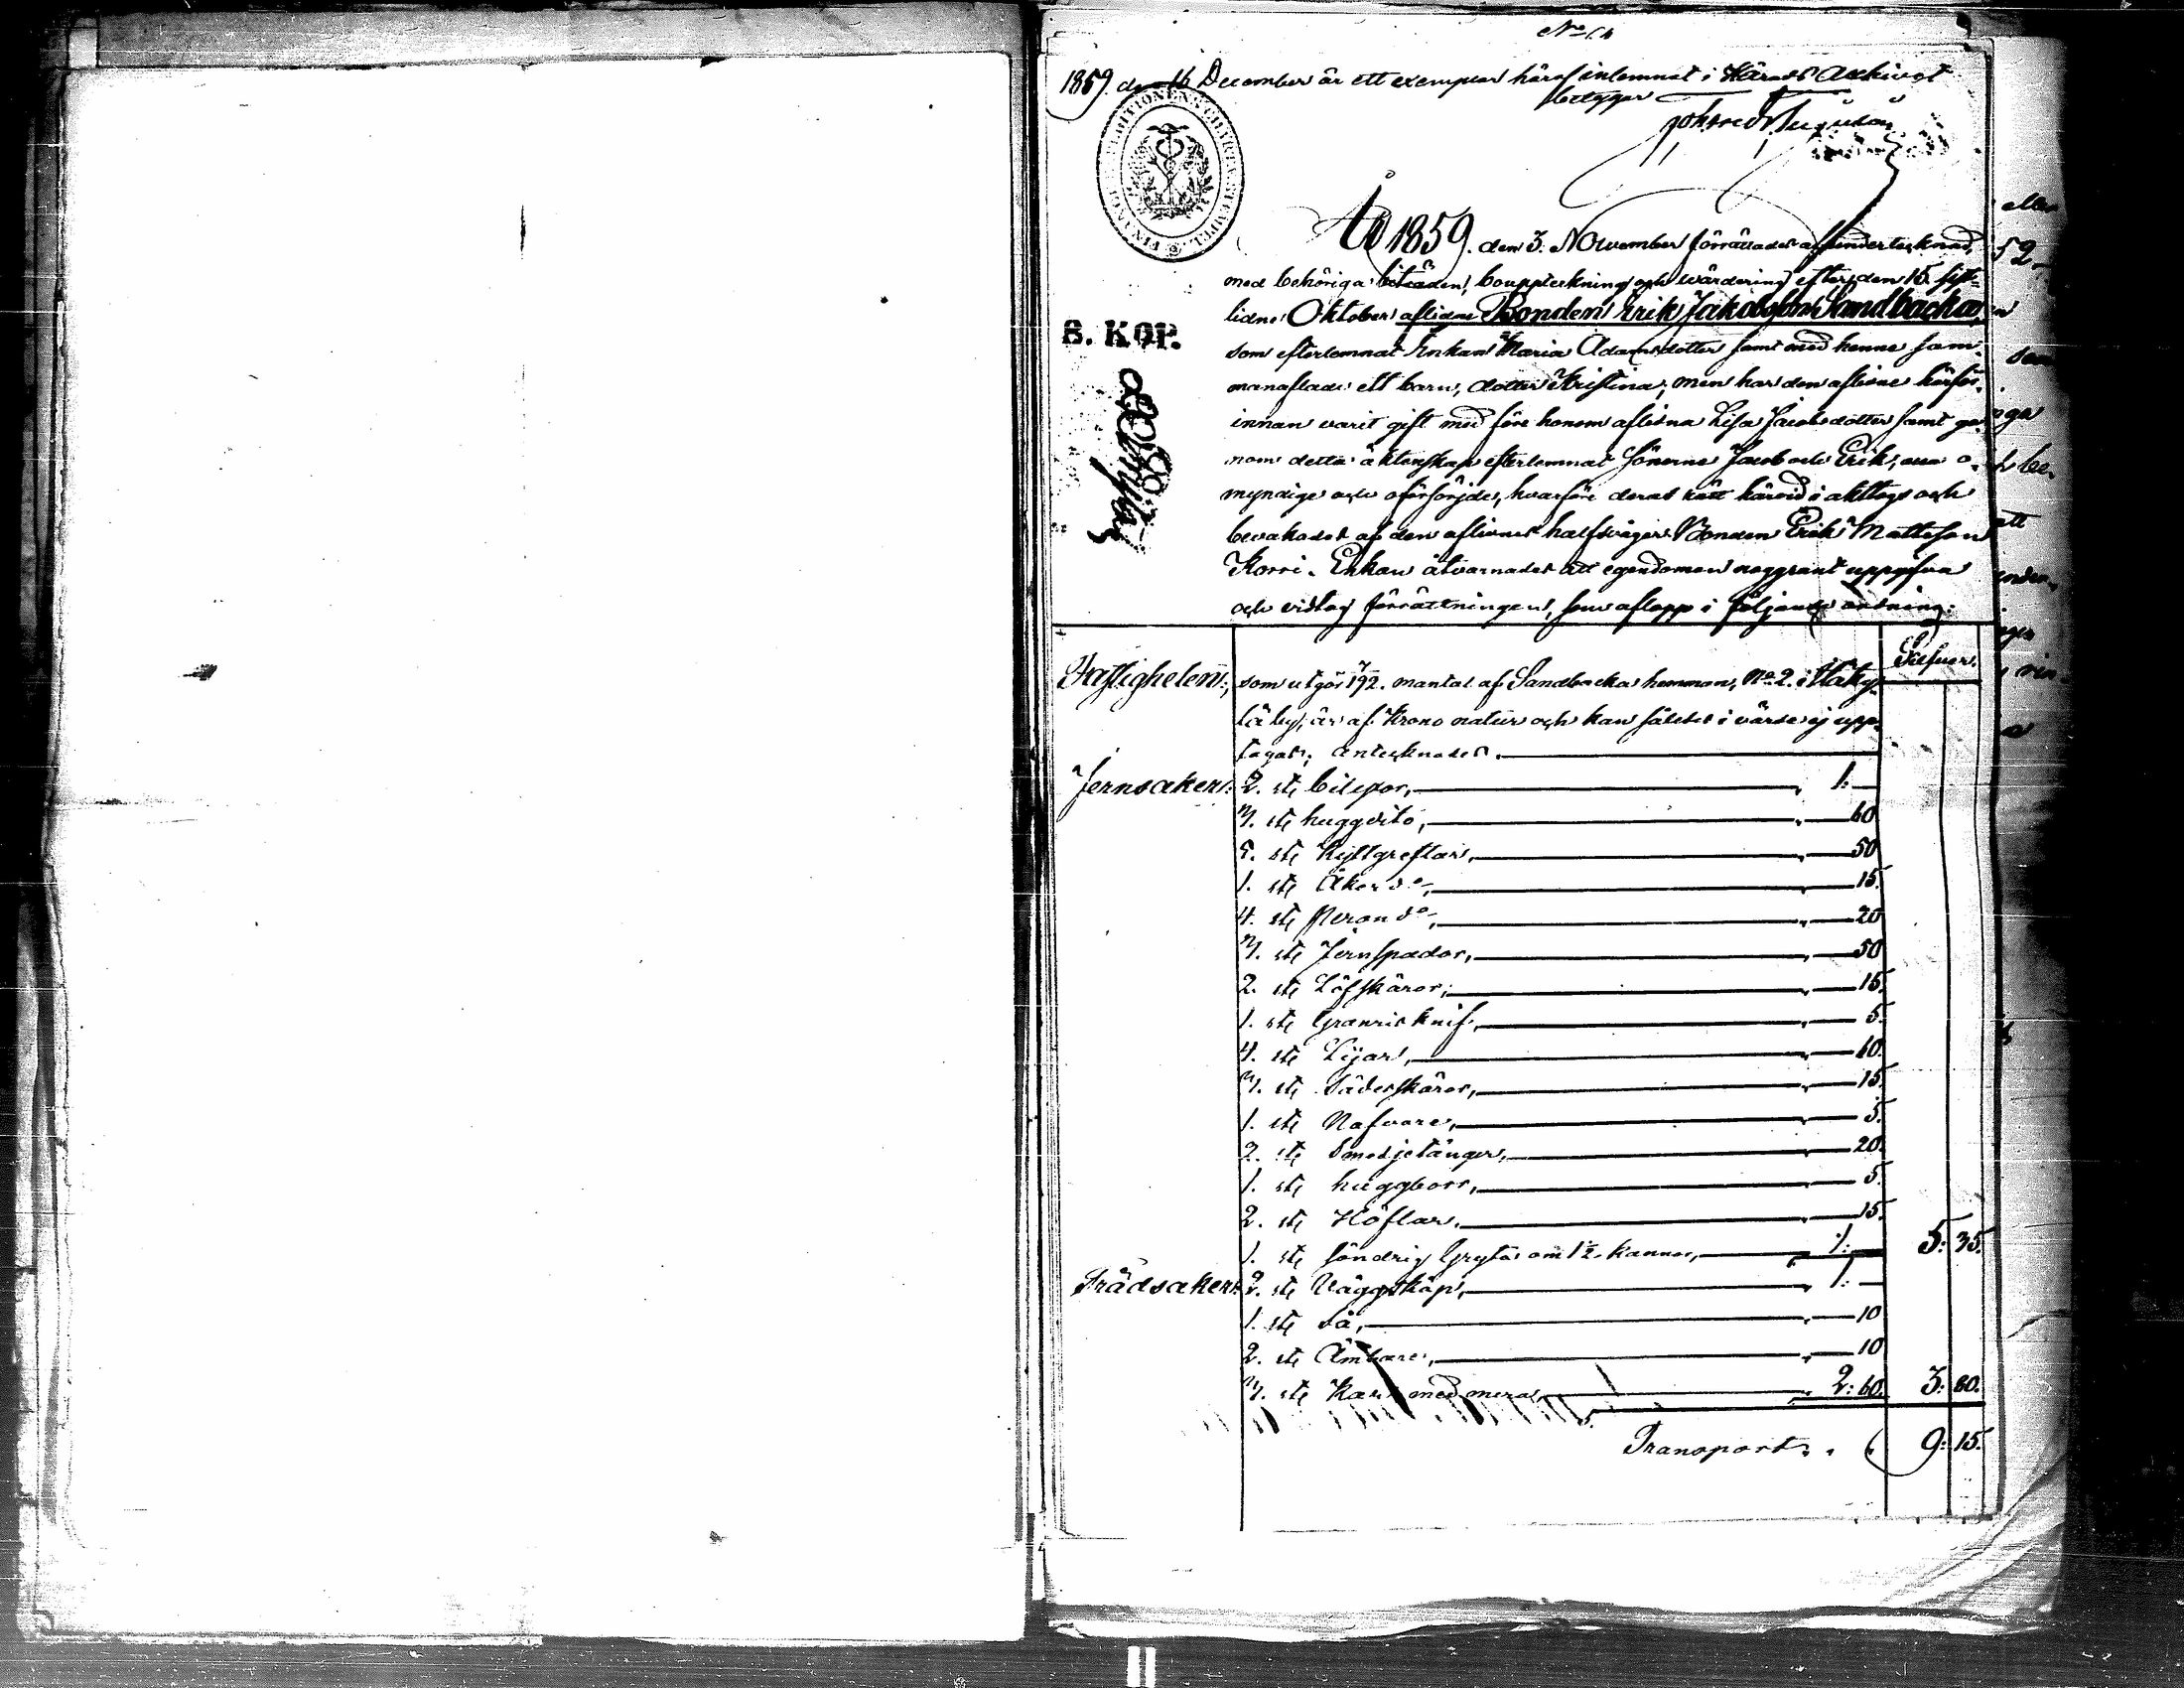 1859. den 16 December är ett exemplar häraf inlemnat i Härads Archivet
betygar
FINANCE EXPEDITIONENS CHARTA STEMPEL
År 1859. den 3. November förrättades af undertecknad,
med behöriga biträden, bouppteckning och värdering efter den 15. sist-
lidne Oktober aflidne Bonden Erik Jakobsson Sandbacka,
8. KOP.
som efterlemnat Enkan Maria Adamsdotter samt med henne sam-
manaflade ett barn, dotter Kristina; men har den aflidne härför-
innan varit gift med före honom aflidna Lisa Jacobsdotter samt ge-
nom detta äktenskap efterlemnat Sönerne Jacob och Erik, alla o-
myndige och oförsörjde, hvarföre deras rätt härvid i akttogs och
bevakades af den aflidnes halfsvåger Bonden Erik Mattsson
Korri. Enkan åtvarnades att egendomen noggrant uppgifva
och vidtog förrättningen, som aflopp i följande ordning:
Silfver.
Fastigheten: som utgör 7/192. mantal af Sandbacka hemman, No 2. i
by, är af Krono natur och kan således i värde ej upp-
tagas; antecknades.
Jernsaker: 2. st. bilyxor, 1: —
3. st. huggdito, 60
5. st. Kyttgreftar, 50
1. st. Åker do, 15.
4. st. do, 20
3. st. Jernspador, 50
2. st. Löfskäror; 15.
1. st. Granrisknif, 5.
4. st. Lijar, 60.
3. st. Sädesskäror, 15.
1. st. Nafvare, 5.
2. st. Smedjetänger, 20.
1. st. huggborr, 5.
2. st. Höflar, 15.
1. st. söndrig Gryta om 1 1/2 kannor, 1: — 5: 35.
Trädsaker: 2. st. Väggskåp, 1: —
1. st. så, 10
2. st. Ämbare, 10
3. st. Kar med mera, 2: 60. 3: 80.
Transport: 9: 15.